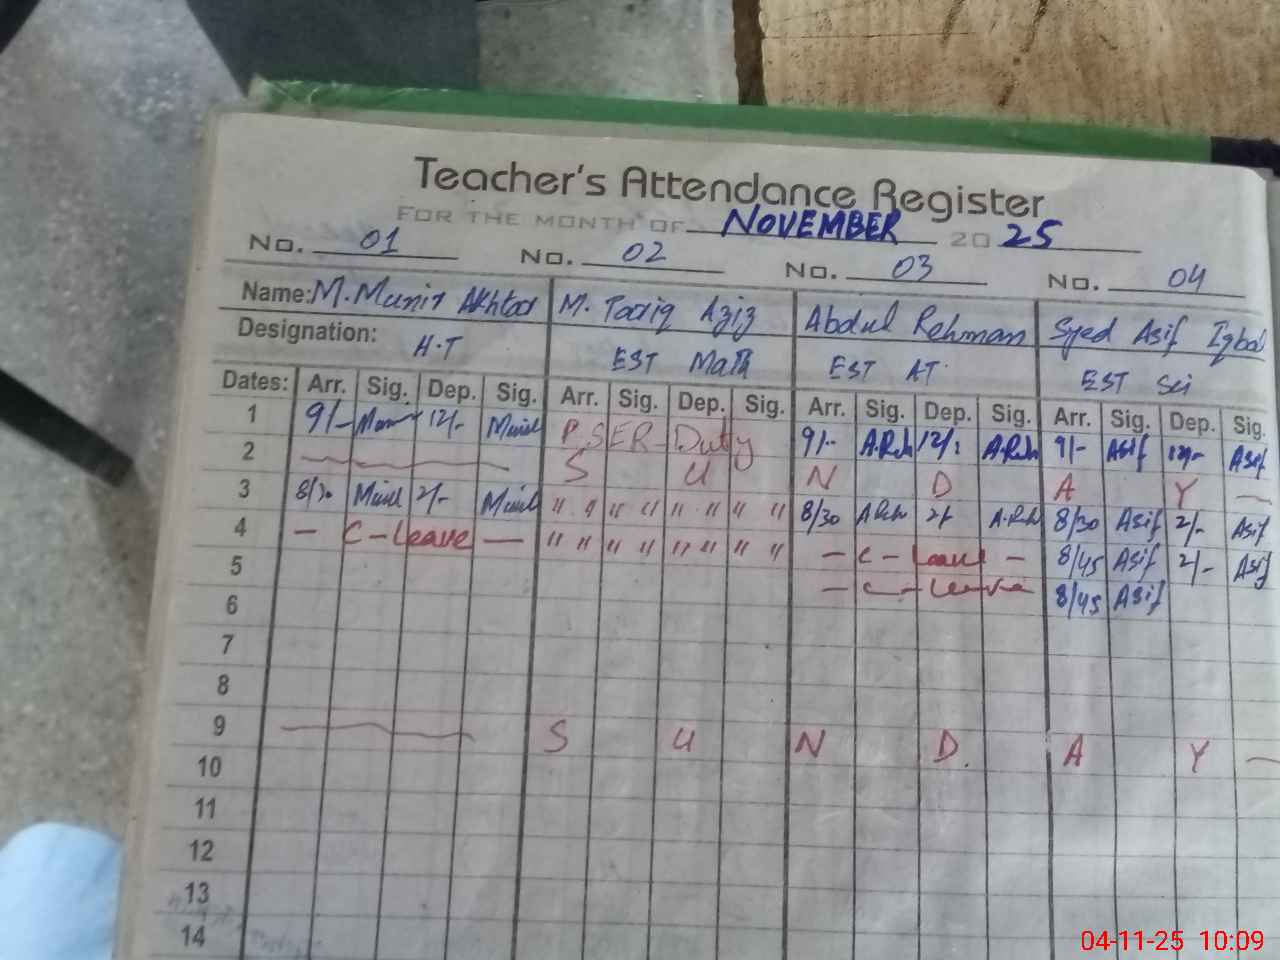 Teacher's Attendance Register
FOR THE MONTH OF NOVEMBER 20 25
No. 01 No. 02 No. 03 No. 04
Name: M. Munir Akhtar M. Tariq Aziz Abdul Rehman Syed Asif Iqbal
Designation: H.T EST Math EST AT EST Sci
Dates: Arr. Sig. Dep. Sig. Arr. Sig. Dep. Sig. Arr. Sig. Dep. Sig. Arr. Sig. Dep. Sig.
1 9/- 12/- Munir PSER Duty 9/- A.Reh 12/- A.Reh 9/- Asif 12/- Asif
2 S U N D A Y
3 8/30 Munir 2/- Munir " " " " " " " " 8/30 A Reh 2/- A.Reh 8/30 Asif 2/- Asif
4 - C-Leave - " " " " " " " " - C - Leave - 8/45 Asif 2/- Asif
5 - C - Leave 8/45 Asif
6
7
8
9 S U N D. A Y
10
11
12
13
14
04-11-25 10:09